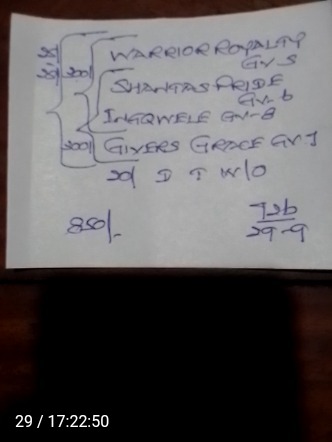 WARRIOR ROYALTY
GV-5
SHANTAS PRIDE
GV-6
INGQWELE GV-8
200/ GIVERS GRACE GV-1
20/ D T W/O
850/-
29-9
29 / 17:22:50